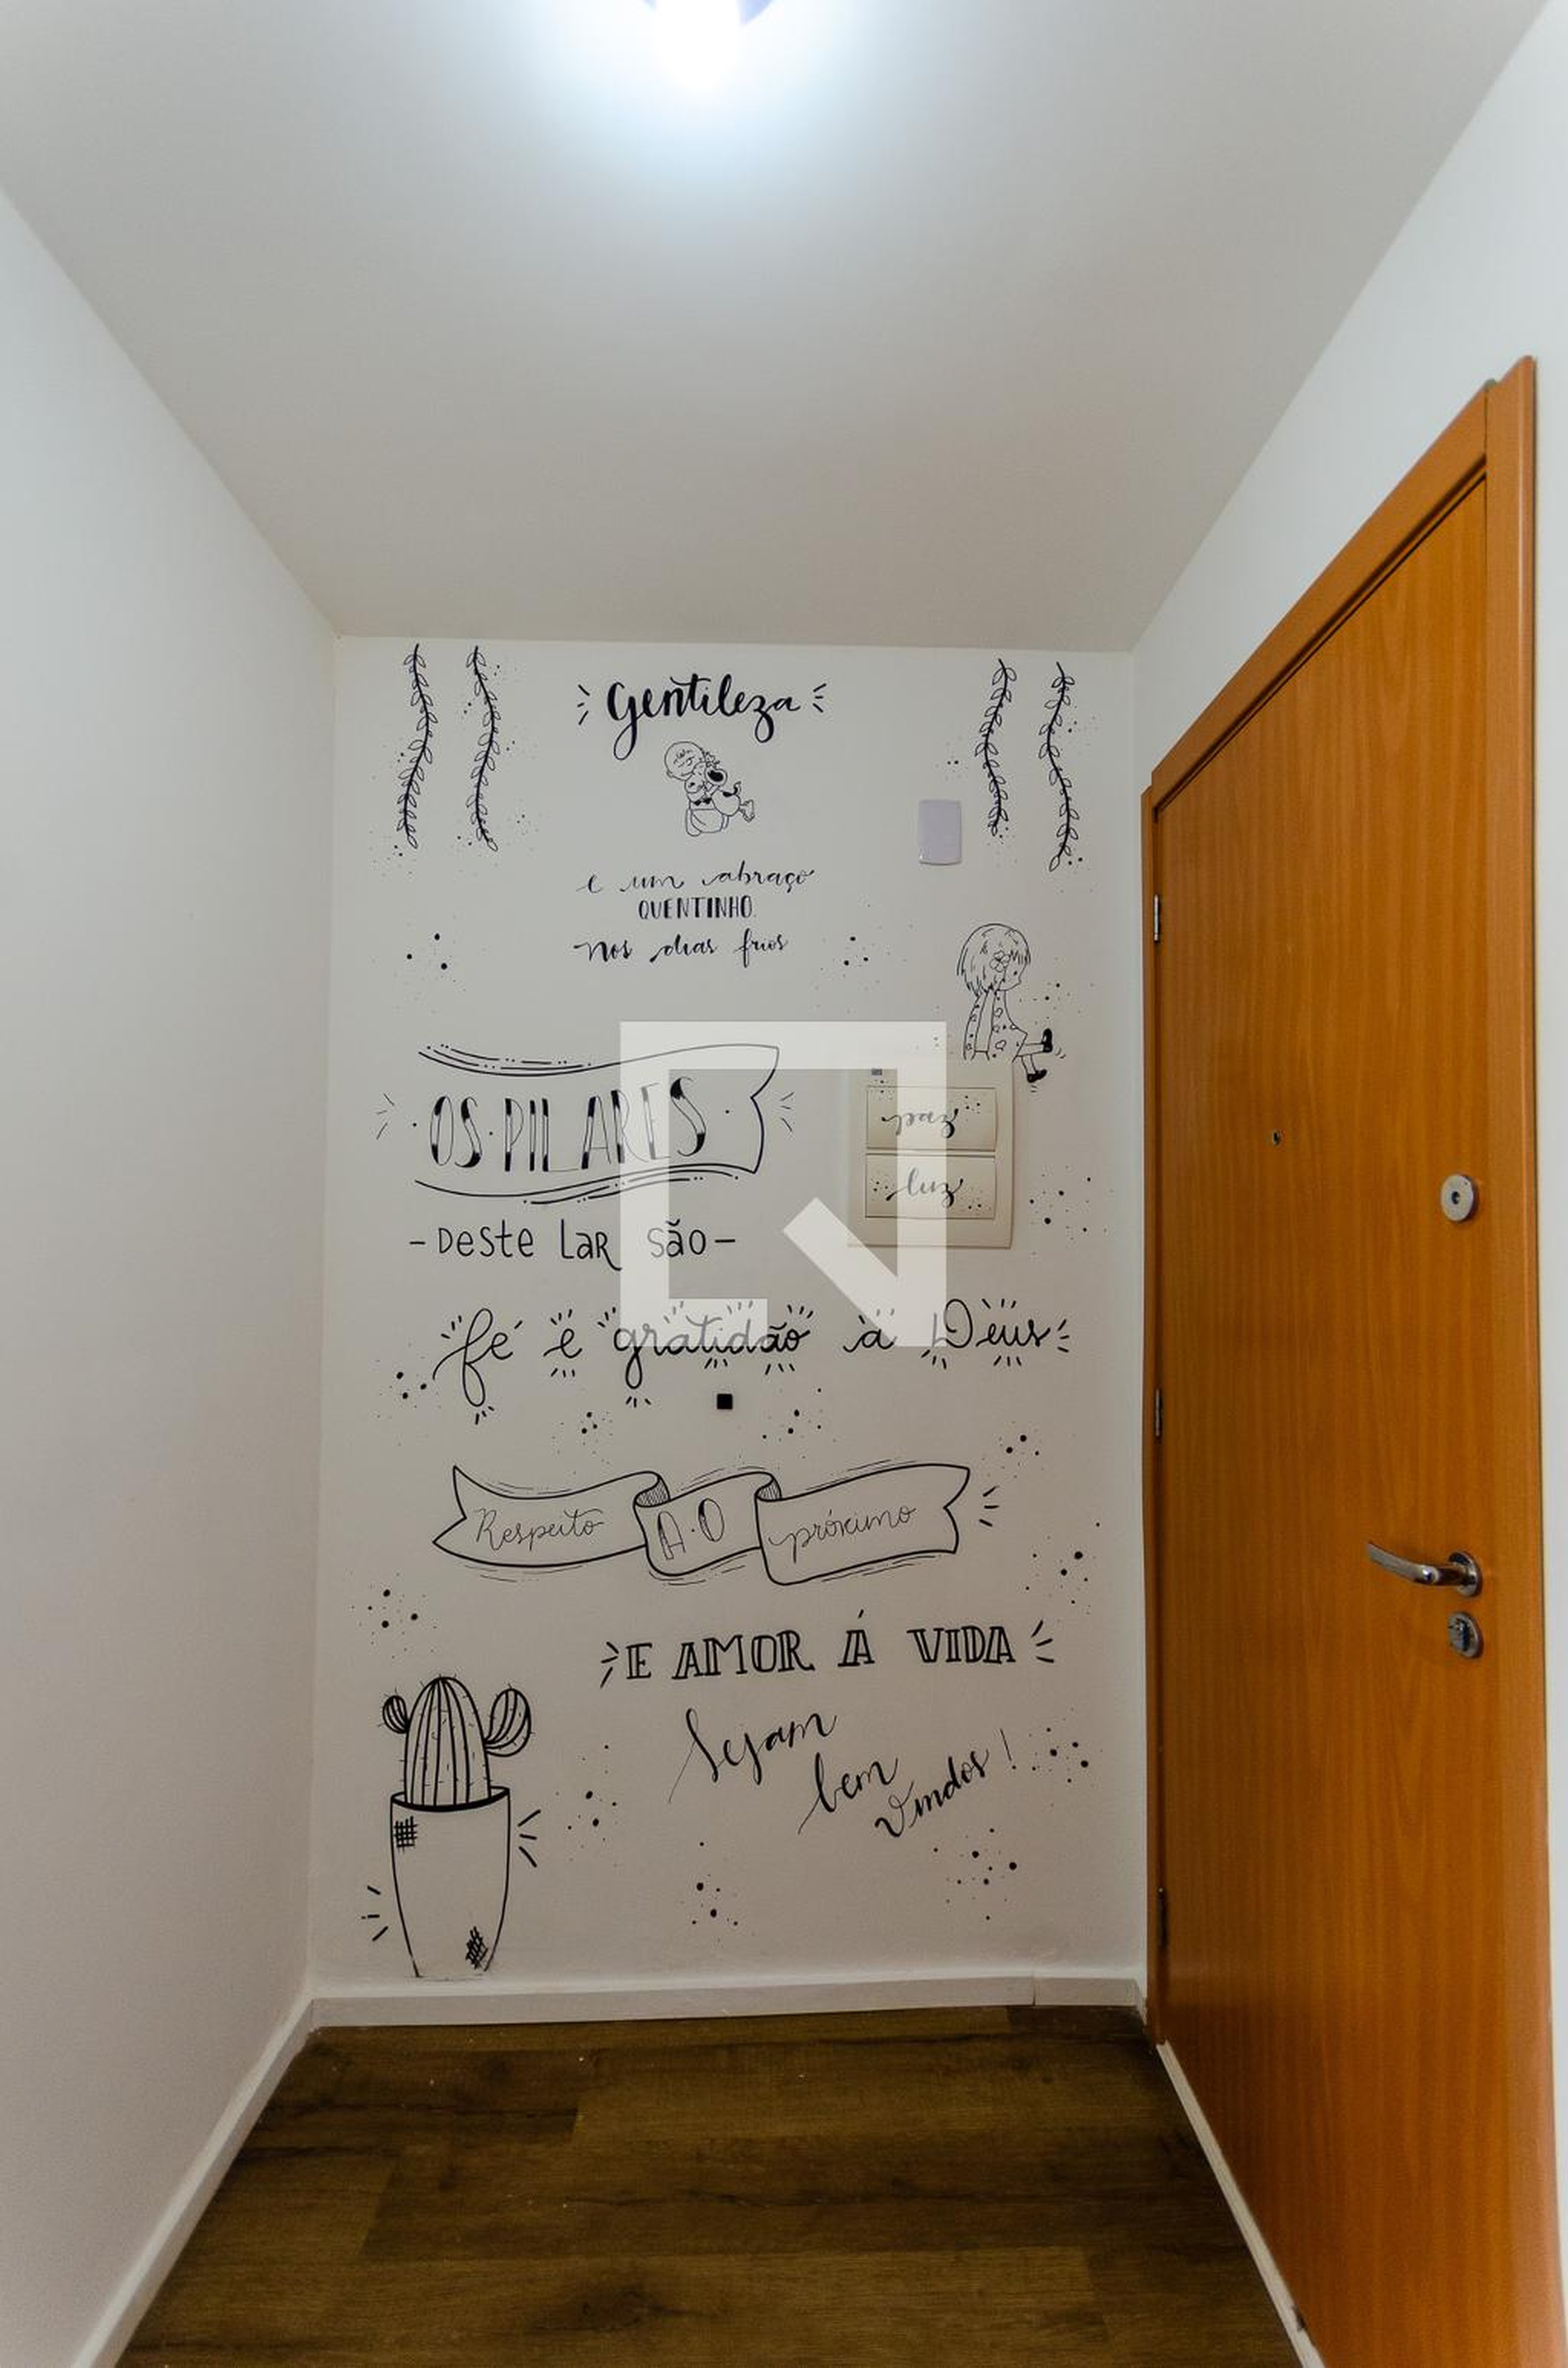 Gentileza
e um abraço
QUENTINHO.
nos dias frios
OS·PILARES
paz
luz
-Deste LaR são-
fé e gratidão a Deus
Respeito A·O próximo
E AMOR Á VIDA
Sejam
bem
Vindos!